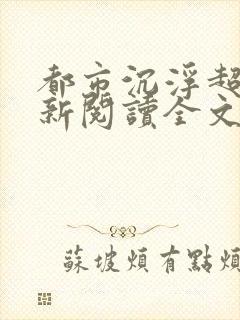 都市沉浮超
新閱讀全文
蘇坡煩有點煩